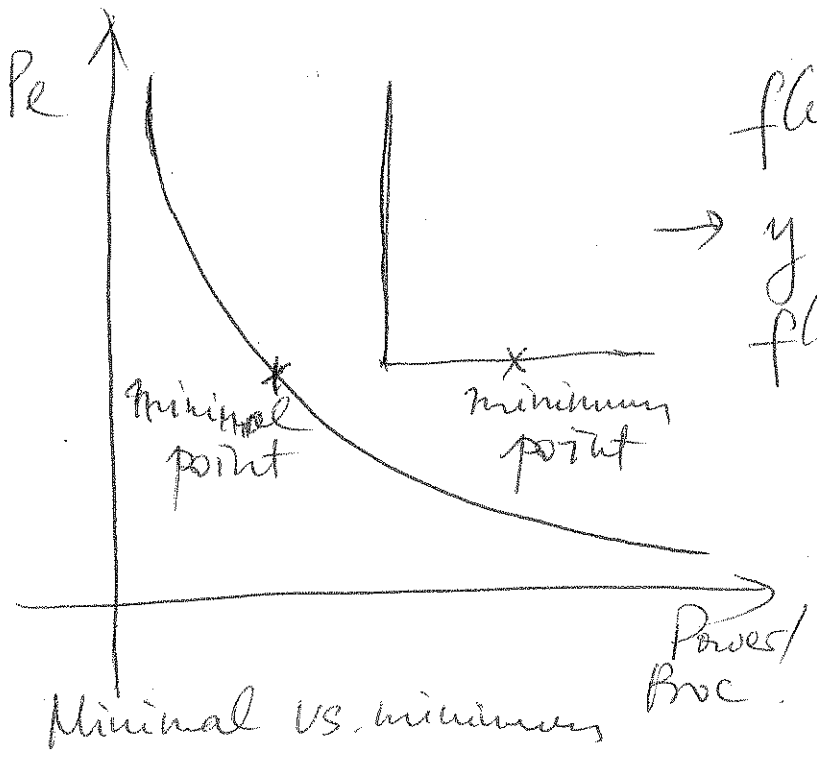 Pe
→ y
minimal
point
minimum
point
Power/
Proc.
Minimal vs. minimum